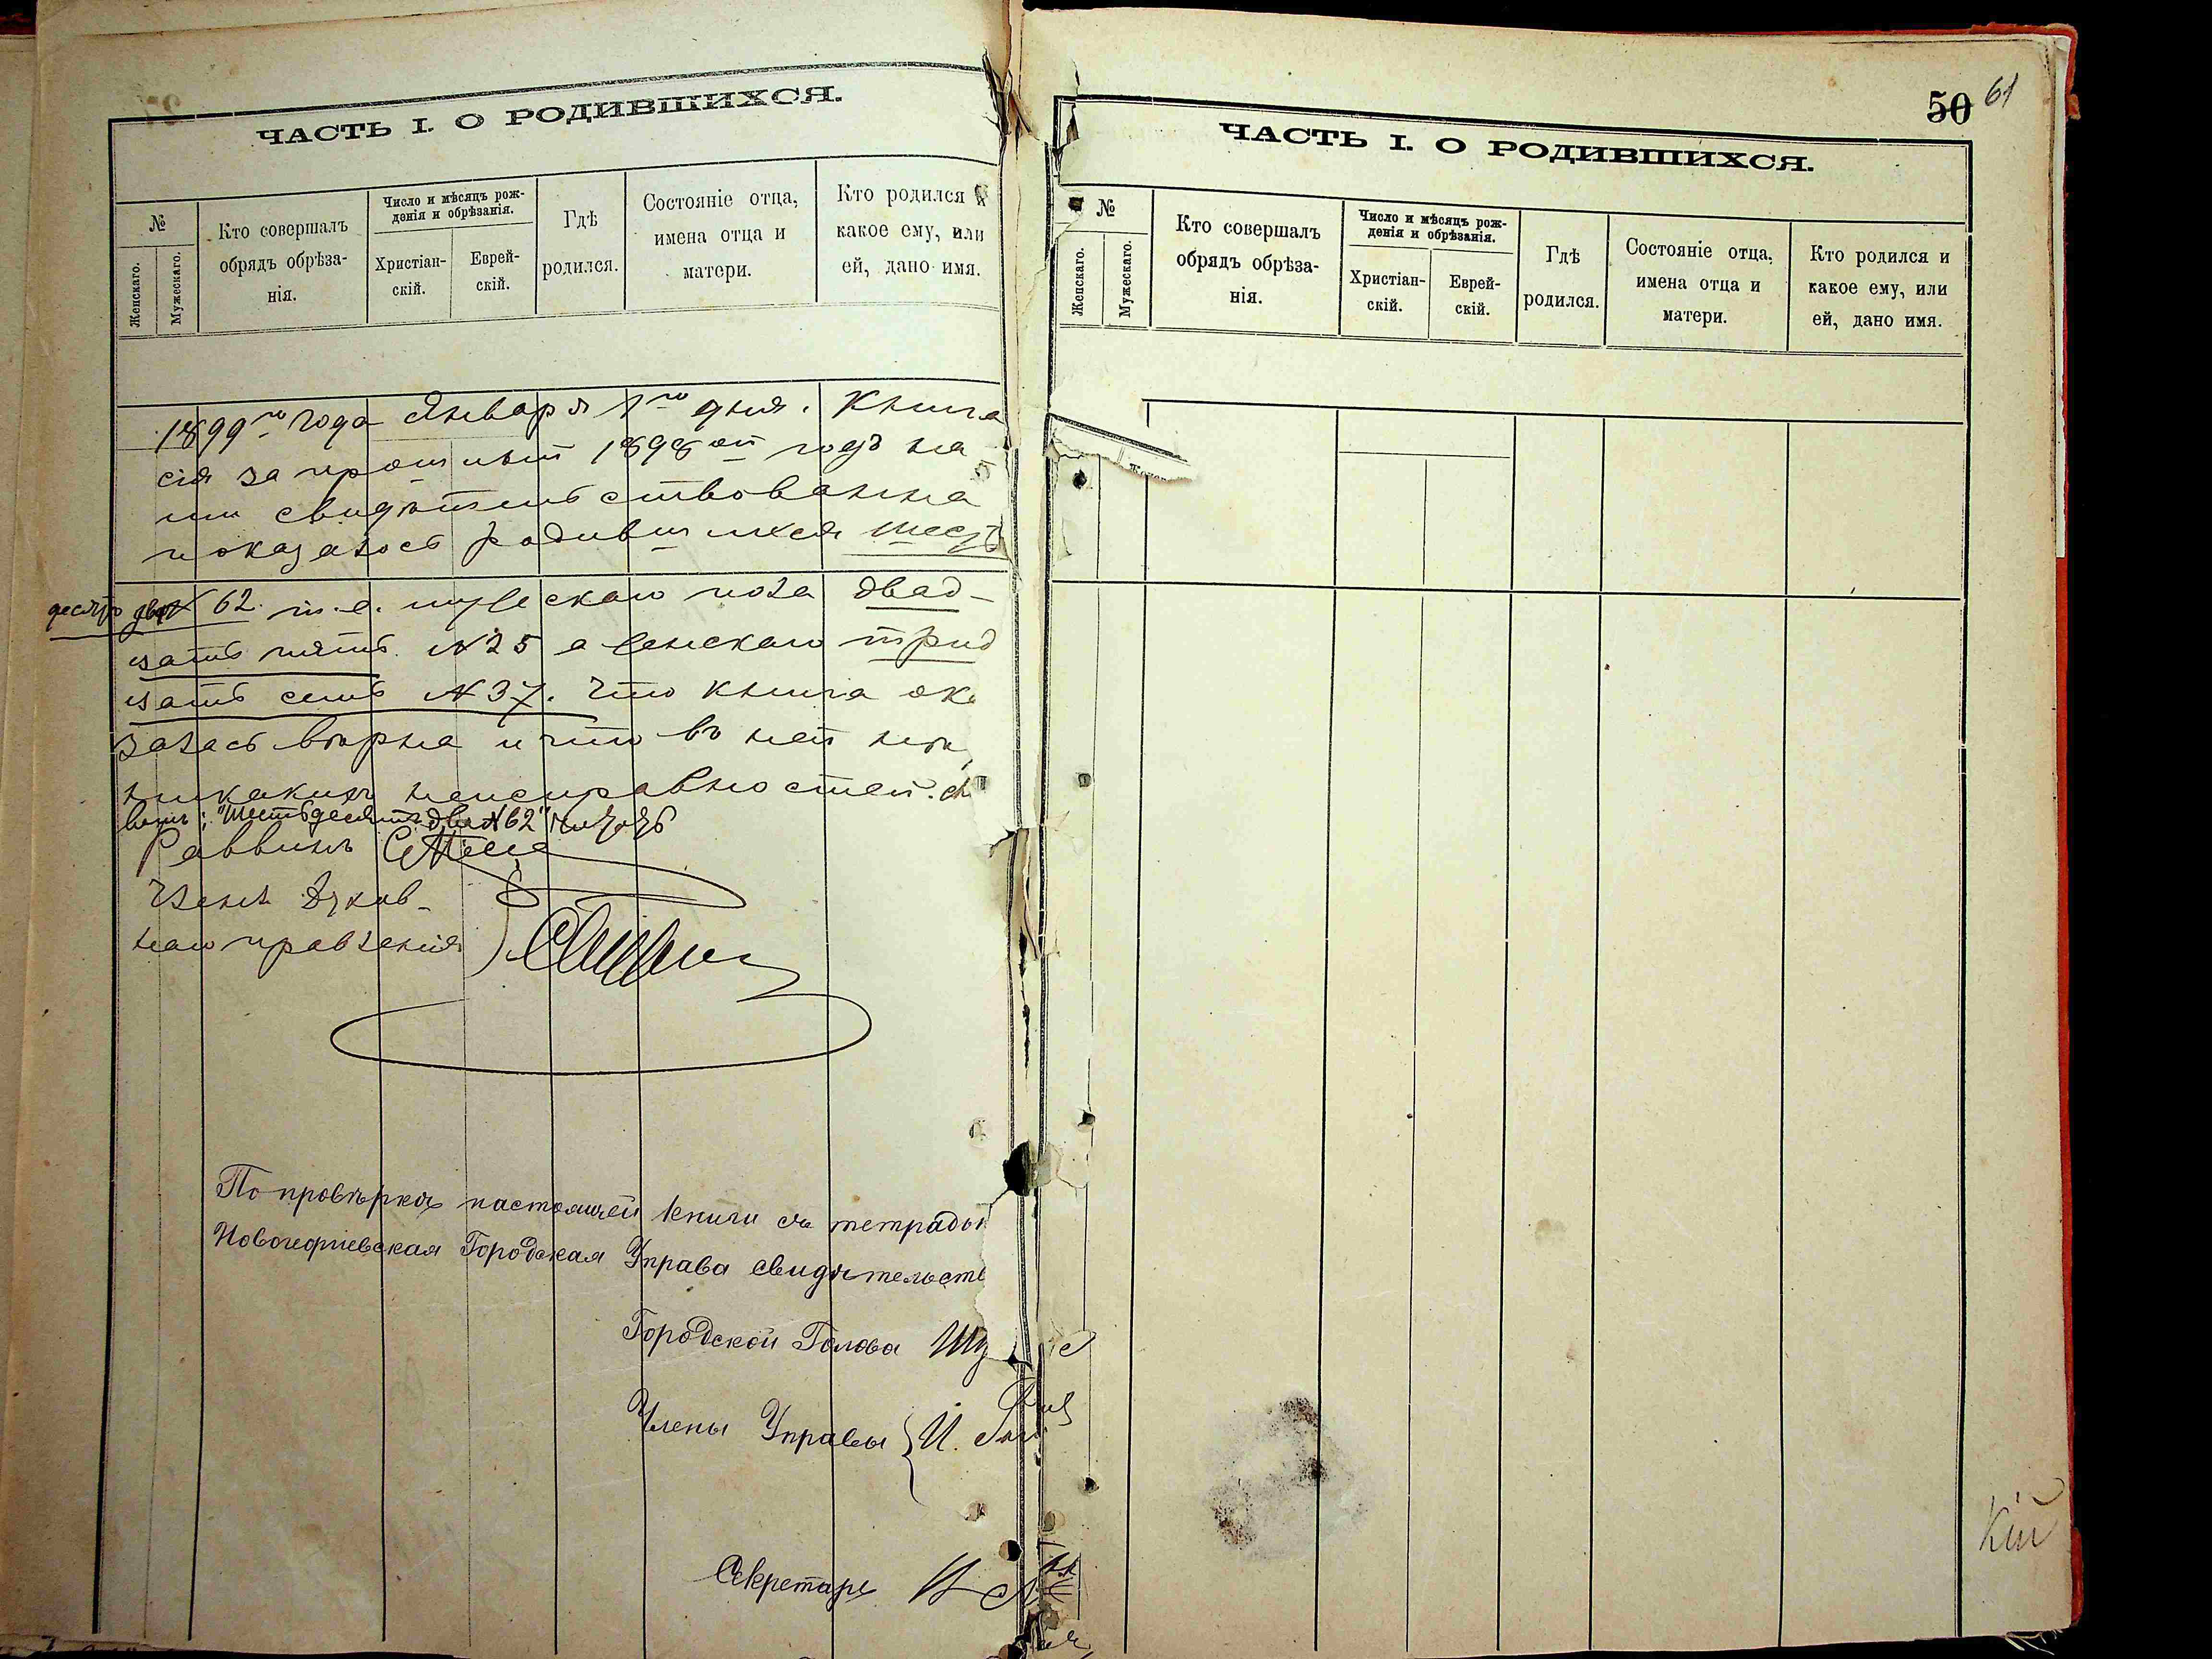 ЧАСТЬ I. О РОДИВШИХСЯ.
№
Женскаго.
Мужескаго.
Кто совершалъ
обрядъ обрѣза-
нія.
Число и мѣсяцъ рож-
денія и обрѣзанія.
Христіан-
скій.
Еврей-
скій.
Гдѣ
родился.
Состояніе отца,
имена отца и
матери.
Кто родился
какое ему, или
ей, дано имя.
1899го года Января 1го дня. Книга
сія за прошлый 1898ой годъ на
ми свидѣтельствованна
показалось родившихся шесть
десятъ два № 62. т.е. мужескаго пола двад-
цать пять. № 25 а женскаго трид
цать семь № 37. Что книга ока
залась вѣрна и что въ ней нѣтъ
никакихъ неисправностей.
"Шестьдесятъ два № 62"
Раввинъ
Членъ Духов-
наго правленія
По провѣркѣ настоящей книги съ тетрадью
Новогеоргіевская Городская Управа свидѣтельств
Городской Голова
Члены Управы
Секретарь
50 61
ЧАСТЬ I. О РОДИВШИХСЯ.
№
Женскаго.
Мужескаго.
Кто совершалъ
обрядъ обрѣза-
нія.
Число и мѣсяцъ рож-
денія и обрѣзанія.
Христіан-
скій.
Еврей-
скій.
Гдѣ
родился.
Состояніе отца,
имена отца и
матери.
Кто родился и
какое ему, или
ей, дано имя.
кій